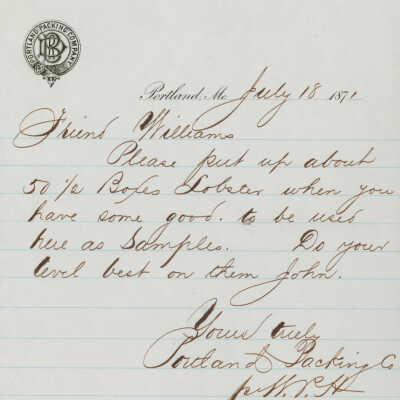 PORTLAND PACKING COMPANY
Portland, Me. July 18 1871
Friend Williams
Please put up about
50 1/2 Boxes Lobster when you
have some good. to be used
here as Samples. Do your
level best on them John.
Yours truly
Portland Packing Co